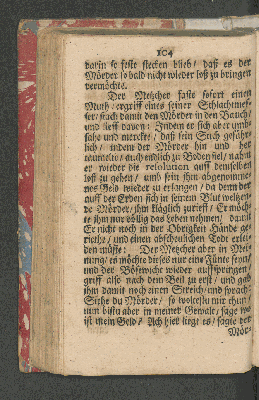 104
darin so feste stecken blieb / daß es der
Mörder so bald nicht wieder loß zu bringen
vermöchte.
Der Metzcher faste sofort einen
Muth / ergriff eines seiner Schlachtmes-
ser / stach damit den Mörder in den Bauch /
und lieff davon: Indem er sich aber umb-
sahe und merckte / daß sein Stich gefähr-
lich / indem der Mörder hin und her
taumelte / auch endlich zu Boden fiel / nahm
er wieder die resolution auff denselben
loß zu gehen / umb sein ihm abgenomme-
nes Geld wieder zu erlangen / da denn der
auff der Erden sich in seinem Blut weltzen-
de Mörder / ihm kläglich zurieff / Er möch-
te ihm nur völlig das Leben nehmen / damit
Er nicht noch in der Obrigkeit Hände ge-
riethe / und einen abscheulichen Todt erlei-
den müste: Der Metzcher aber in Mei-
nung / es möchte dieses nur eine Finte seyn /
und der Bösewicht wieder auffspringen /
griff also nach dem Beil zu erst / und gab
ihm damit noch einen Streich / und sprach:
Siehe du Mörder / so woltestu mir thun /
nun bistu aber in meiner Gewalt / sage wo
ist mein Geld? Ach hier liegt es / sagte der
Mör-